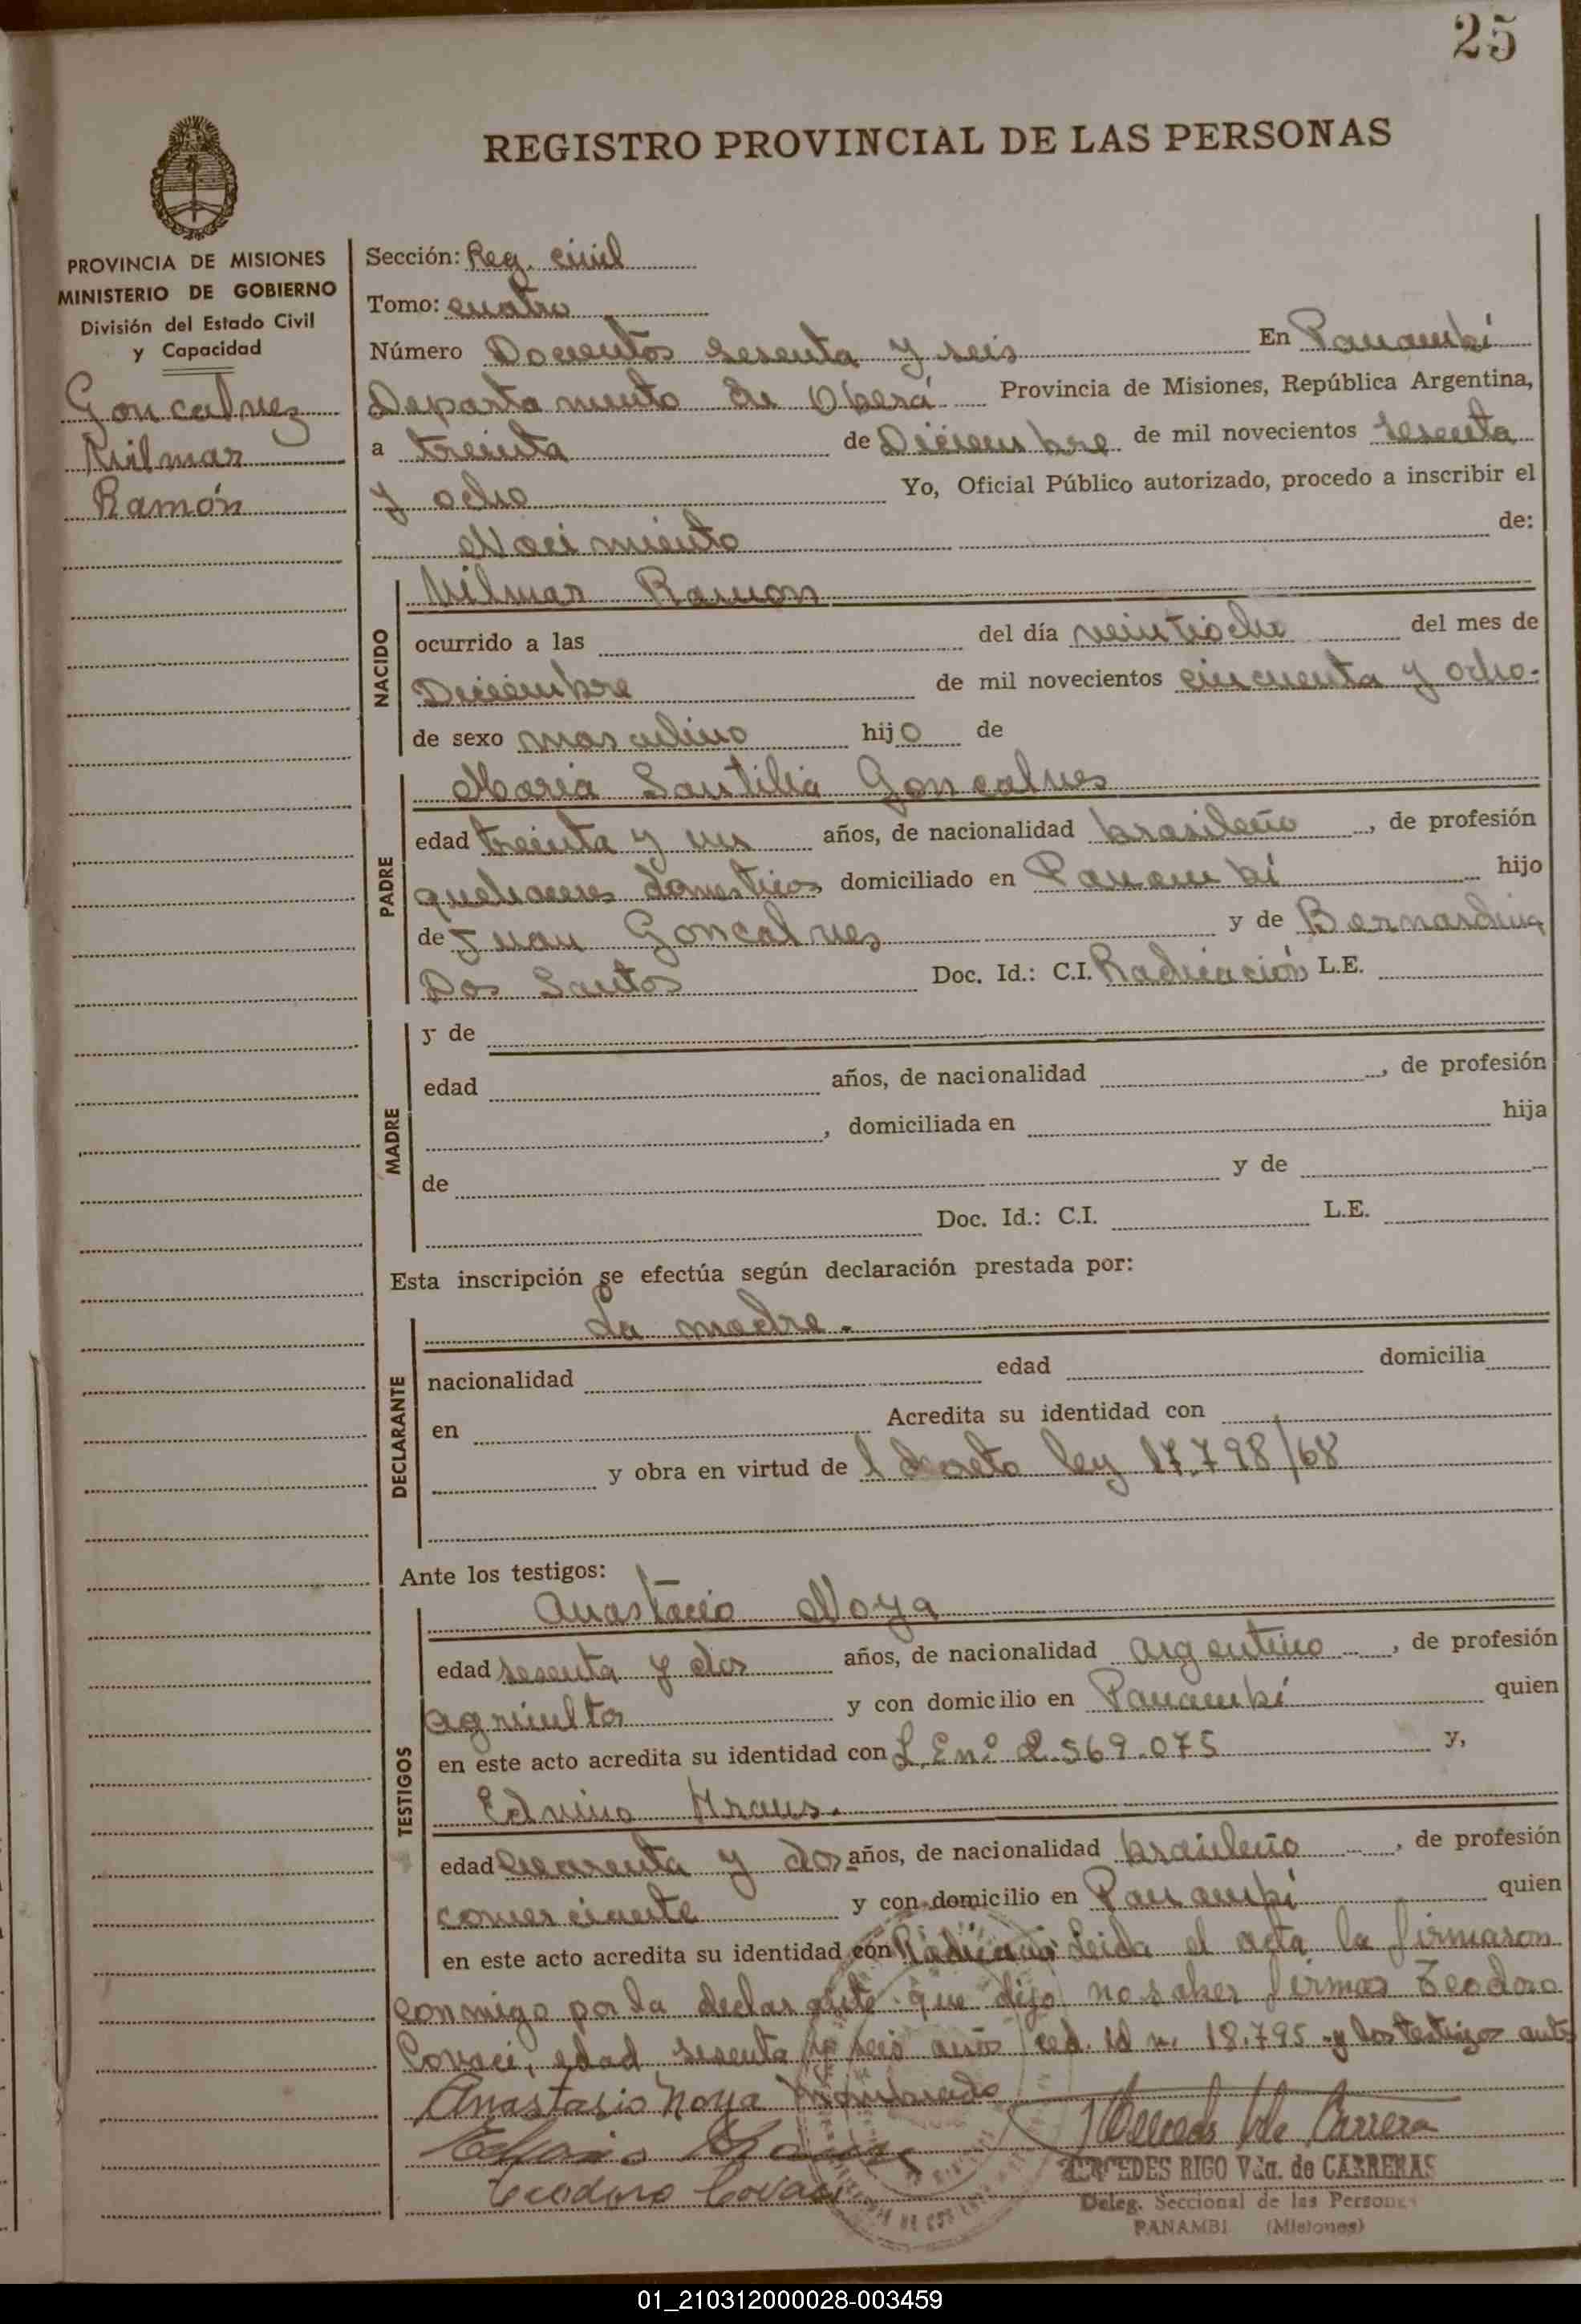 25
REGISTRO PROVINCIAL DE LAS PERSONAS
PROVINCIA DE MISIONES
MINISTERIO DE GOBIERNO
División del Estado Civil
y Capacidad
Goncalvez
Wilmar
Ramón
Sección: Reg. civil
Tomo: cuatro
Número Docientos sesenta y seis En Panambí
Departamento de Oberá Provincia de Misiones, República Argentina,
a treinta de Diciembre de mil novecientos sesenta
y ocho Yo, Oficial Público autorizado, procedo a inscribir el
Nacimiento de:
NACIDO
Wilmar Ramon
ocurrido a las del día veintiocho del mes de
Diciembre de mil novecientos cincuenta y ocho.
de sexo masculino hijo de
PADRE
Maria Santilia Goncalves
edad treinta y un años, de nacionalidad brasileño, de profesión
quehaceres domesticos domiciliado en Panambí hijo
de Juan Goncalves y de Bernardina
Dos Santos Doc. Id.: C.I. Radicación L.E.
MADRE
y de
edad años, de nacionalidad , de profesión
, domiciliada en hija
de y de
Doc. Id.: C.I. L.E.
Esta inscripción se efectúa según declaración prestada por:
DECLARANTE
La madre.
nacionalidad edad domicilia
en Acredita su identidad con
y obra en virtud de l decreto ley 17.798/68
Ante los testigos:
TESTIGOS
Anastacio Noya
edad sesenta y dos años, de nacionalidad argentino, de profesión
agricultor y con domicilio en Panambí quien
en este acto acredita su identidad con L.E nº 2.569.075 y,
Edvino Kraus.
edad cuarenta y dos años, de nacionalidad brasileño, de profesión
comerciante y con domicilio en Panambí quien
en este acto acredita su identidad con Radicación Leida el acta la firmaron
conmigo por la declarante que dijo no saber firmar Teodoro
Covaci, edad sesenta y seis años ced. id n. 18.795 y los testigos ante
Anastasio Noya nombrado
Teodoro Covaci
MERCEDES RIGO Vda. de CARRERAS
Deleg. Seccional de las Personas
PANAMBI (Misiones)
01_210312000028-003459